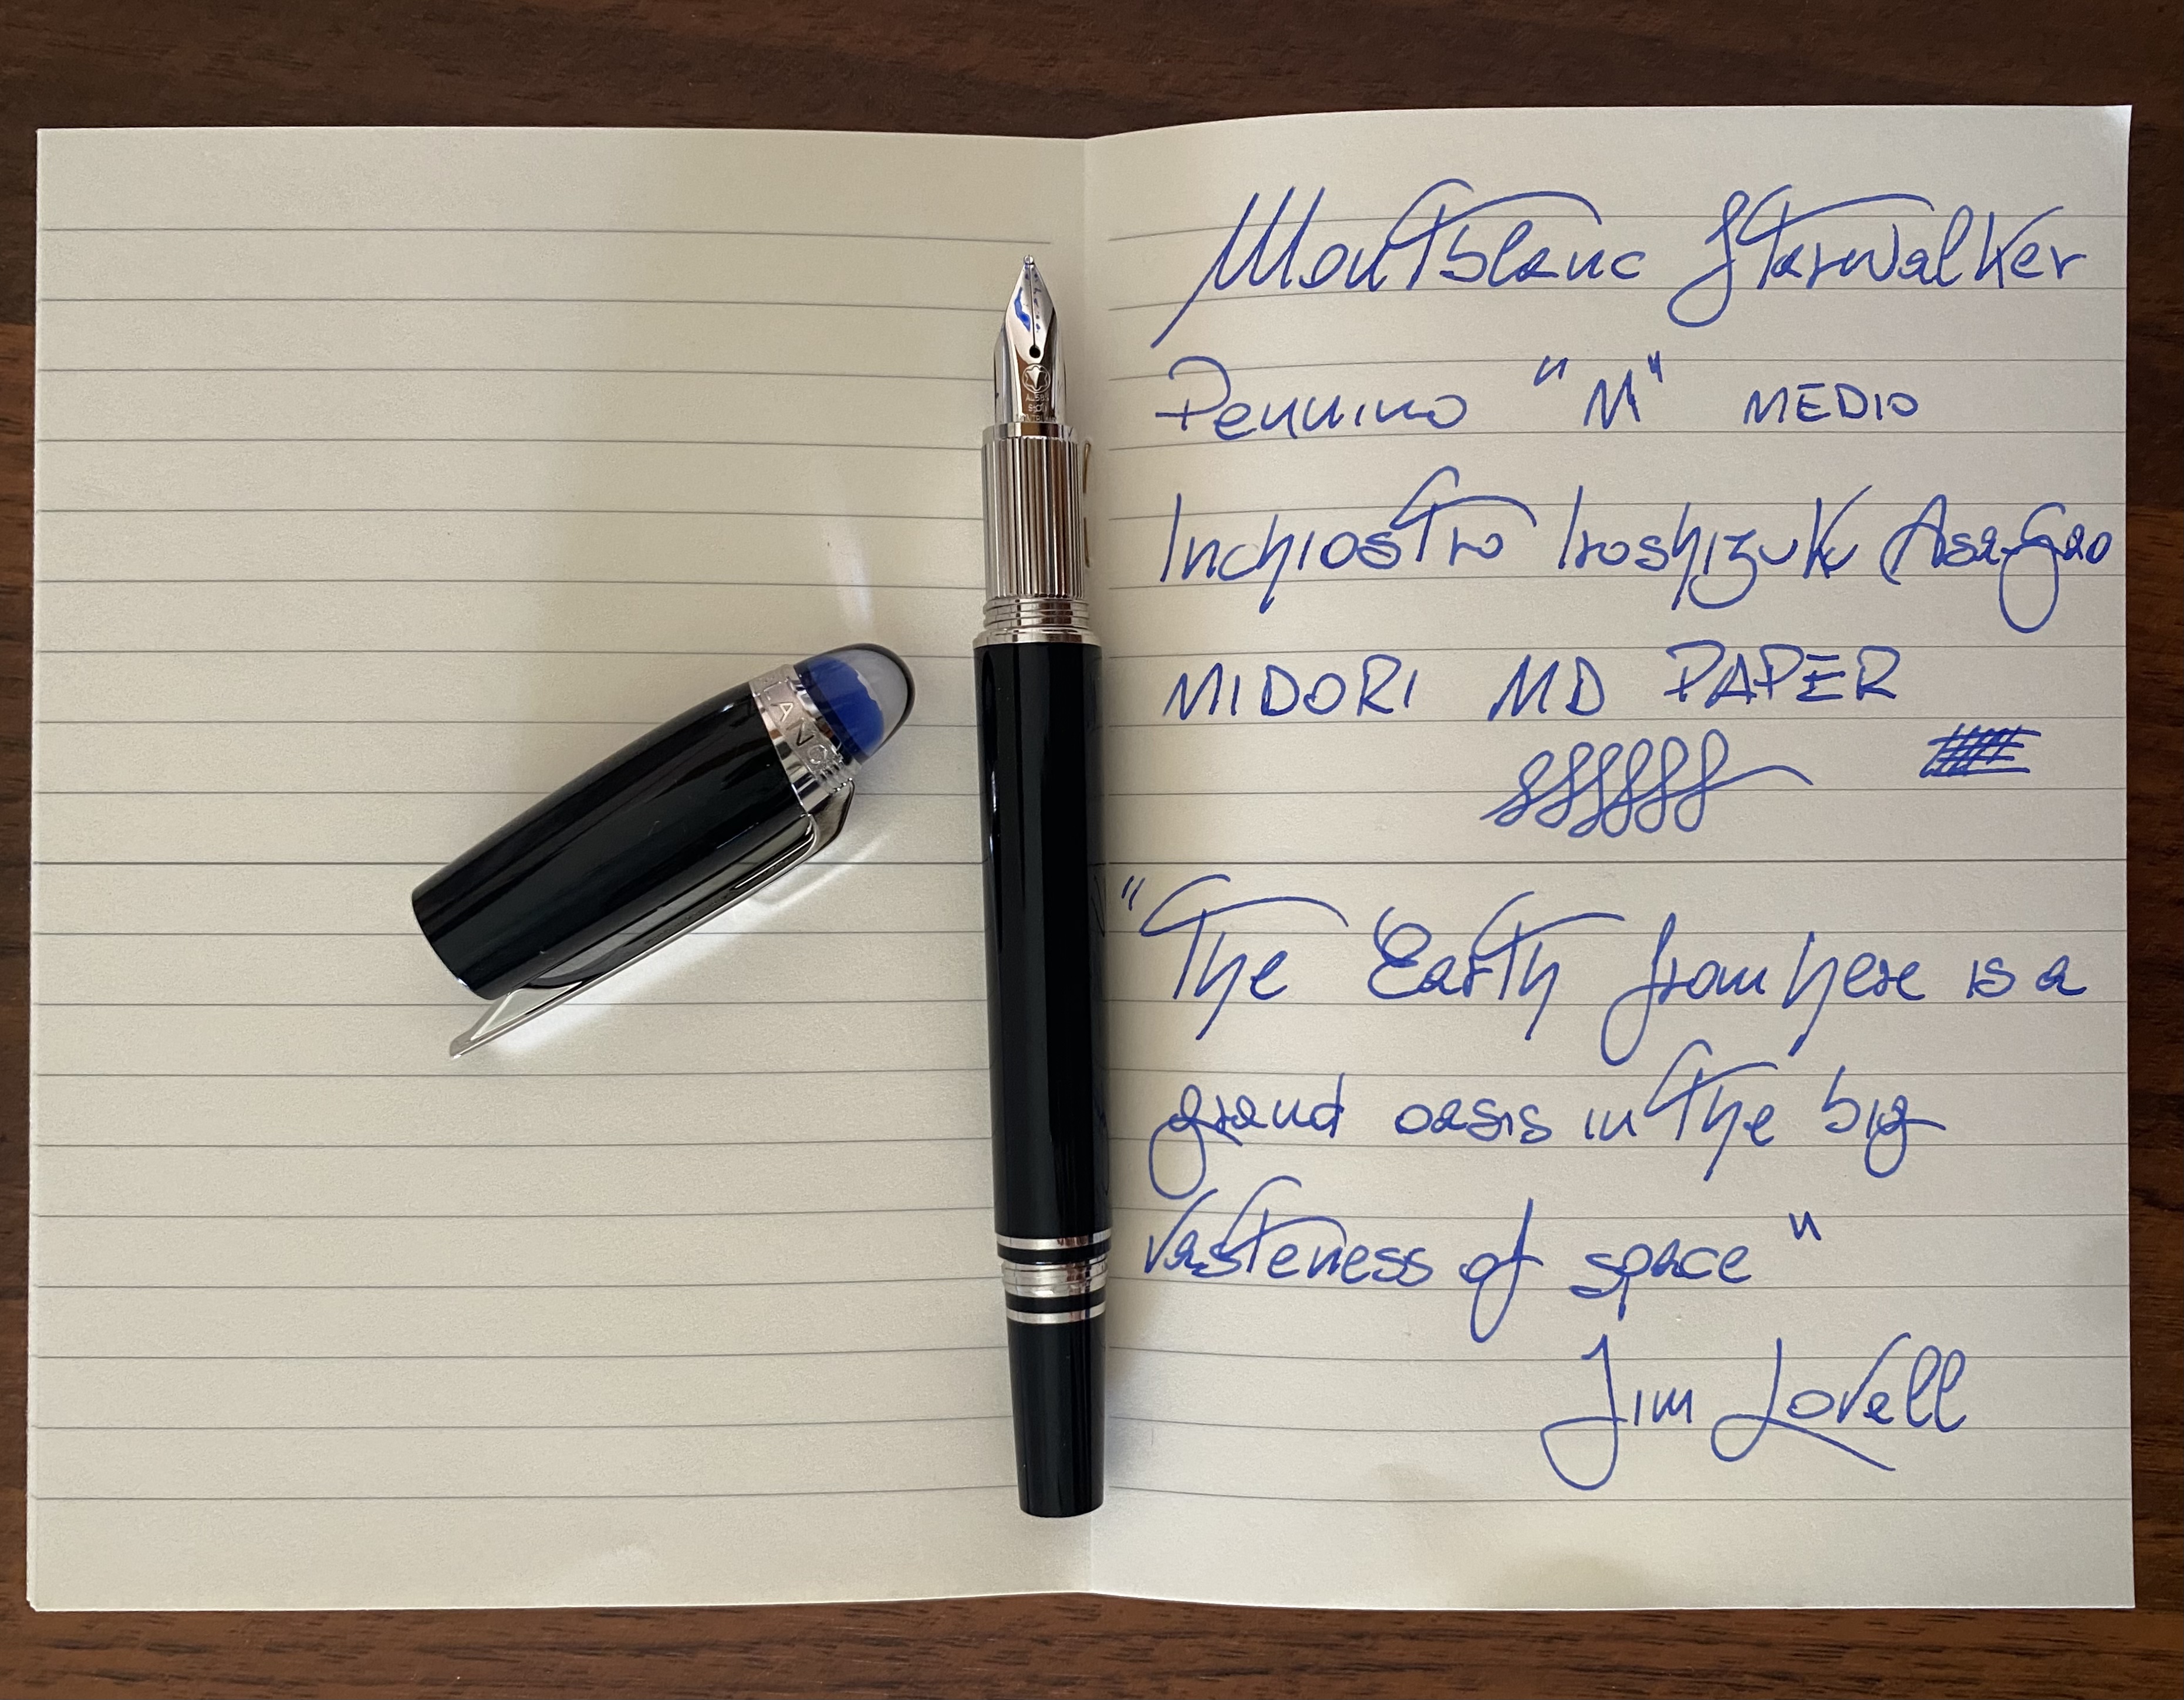 Montblanc StarWalker
Pennino "M" MEDIO
Inchiostro Iroshizuku Asa-Gao
MIDORI MD PAPER
"The Earth from here is a
grand oasis in the big
vasteness of space"
Jim Lovell
LANC